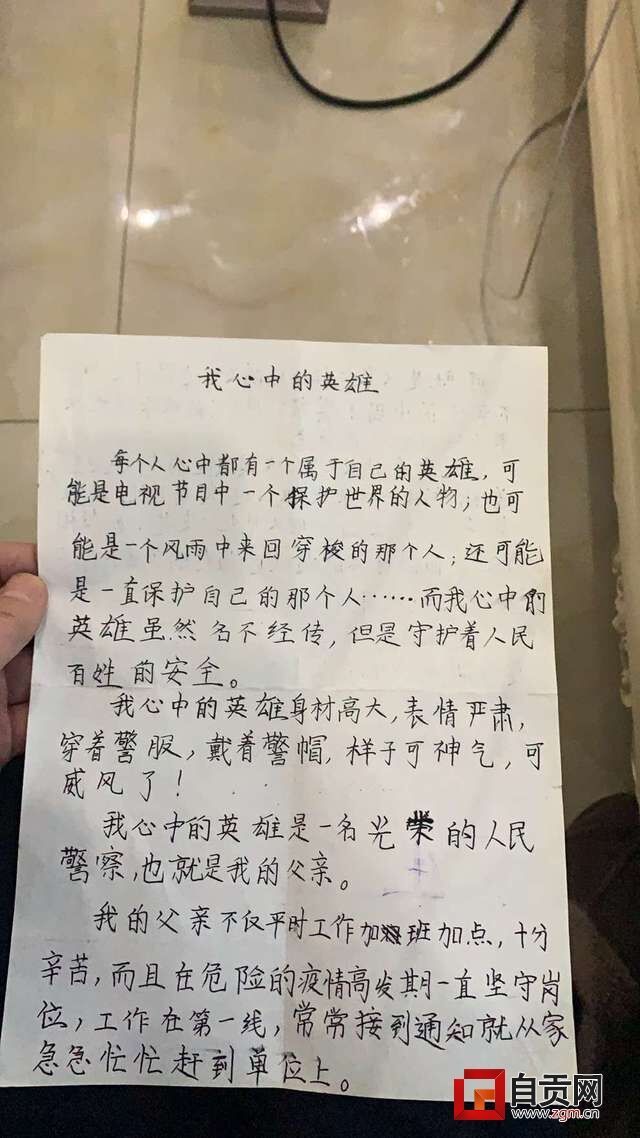 我心中的英雄
每个人心中都有一个属于自己的英雄，可
能是电视节目中一个保护世界的人物；也可
能是一个风雨中来回穿梭的那个人；还可能
是一直保护自己的那个人……而我心中的
英雄虽然名不经传，但是守护着人民
百姓的安全。
我心中的英雄身材高大，表情严肃，
穿着警服，戴着警帽，样子可神气，可
威风了！
我心中的英雄是一名光荣的人民
警察，也就是我的父亲。
我的父亲不仅平时工作加班加点，十分
辛苦，而且在危险的疫情高发期一直坚守岗
位，工作在第一线，常常接到通知就从家
急急忙忙赶到单位上。
自贡网
www.zgm.cn